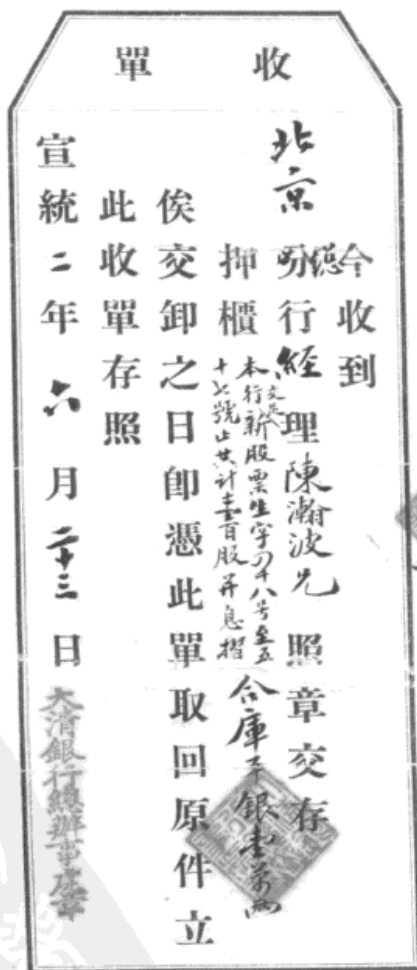 收單
今收到
北京總分行經理陳瀚波兄照章交存
抑櫃交足本行新股票生字四十八号至五十七號止共計壹百股并息摺合庫平銀壹萬兩
俟交卸之日即憑此單取回原件立
此收單存照
宣統二年六月二十三日
大清銀行總辦事處章